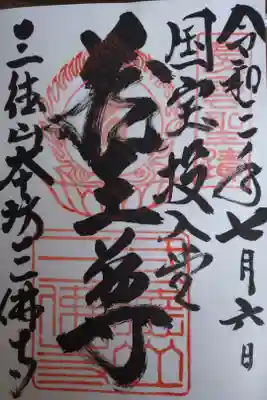 令和二年七月六日
国宝投入堂
蔵王尊
三徳山本坊三佛寺